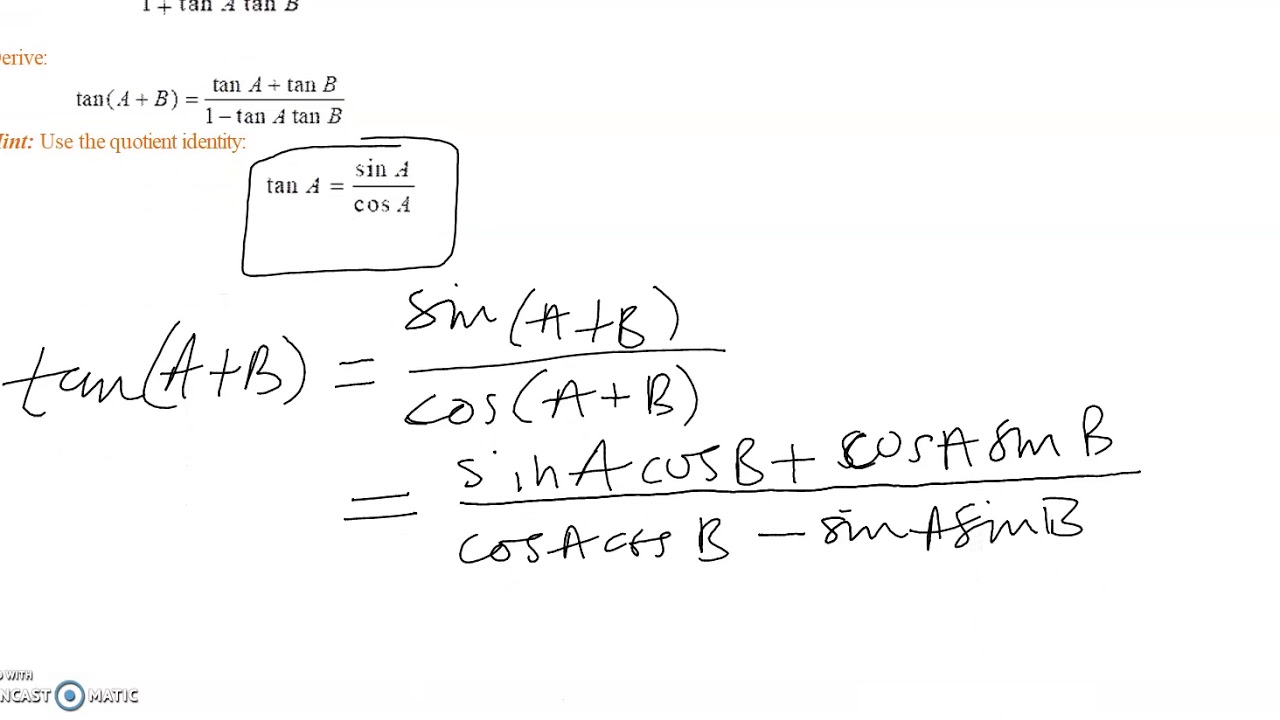 1 + tan A tan B
erive:
tan(A + B) = tan A + tan B / 1 − tan A tan B
int: Use the quotient identity:
tan A = sin A / cos A
tan(A+B) = sin(A+B) / cos(A+B)
= sinA cosB + cosA sinB / cosA cosB − sinA sinB
WITH
NCAST MATIC